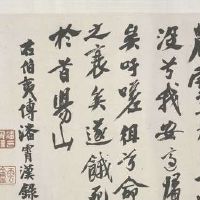 沒兮我安適歸
矣吁嗟徂兮命
之衰矣遂餓死
於首陽山
右伯夷傳